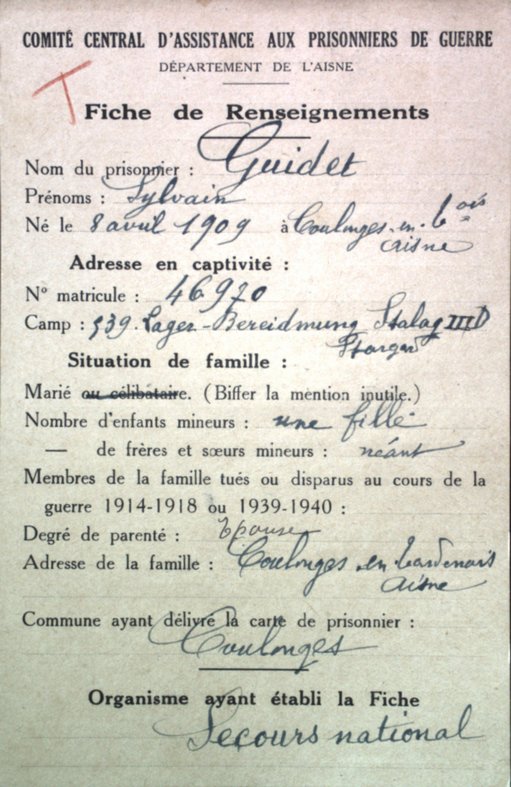 COMITÉ CENTRAL D'ASSISTANCE AUX PRISONNIERS DE GUERRE
DÉPARTEMENT DE L'AISNE
T
Fiche de Renseignements
Nom du prisonnier : Guidet
Prénoms : Sylvain
Né le 8 avril 1909 à Coulonges-en-
Aisne
Adresse en captivité :
N° matricule : 46970
Camp : 939. Lager-Bereidmung Stalag III D
Stargard
Situation de famille :
Marié ou célibataire. (Biffer la mention inutile.)
Nombre d'enfants mineurs : une fille
— de frères et sœurs mineurs : néant
Membres de la famille tués ou disparus au cours de la
guerre 1914-1918 ou 1939-1940 :
Degré de parenté : Epouse
Adresse de la famille : Coulonges en tardenois
Aisne
Commune ayant délivré la carte de prisonnier :
Coulonges
Organisme ayant établi la Fiche
Secours national